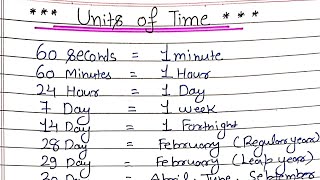 *** Units of Time ***
60 Seconds = 1 minute
60 Minutes = 1 Hour
24 Hour = 1 Day
7 Day = 1 week
14 Day = 1 Fortnight
28 Day = February (Regular year)
29 Day = February (Leap year)
30 Day = April, June, September